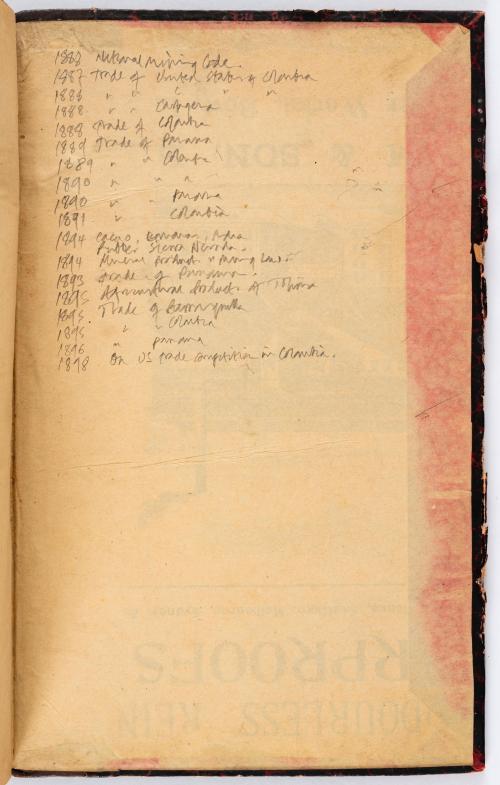 1883 National Mining Code.
1887 Trade of United States & Colombia
1888 " " " " "
1888. " " Cartagena
1888 Trade of Colombia
1889 Trade of Panama
1889 " " Colombia
1890 " " "
1890 " Panama
1891 " Colombia
1894 Cacao, Bananas,
Rubber, Sierra Nevada.
1894 Mineral products & Mining Laws
1893 Trade of Panama.
1895 Agricultural Products of Tolima
1895. Trade of Barranquilla
1895 " " Colombia
1896 " Panama
1898 On US trade competition in Colombia.
RPROOFS
DOURLESS REIN